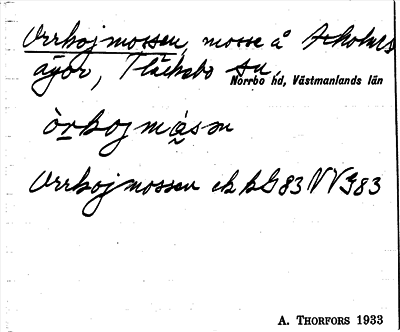 Orrkojmossen, mosse å
ägor, Fläckebo sn,
Norrbo hd, Västmanlands län
òrkojmåsɘn
Orrkojmossen ek bG83NVG83
A. THORFORS 1933